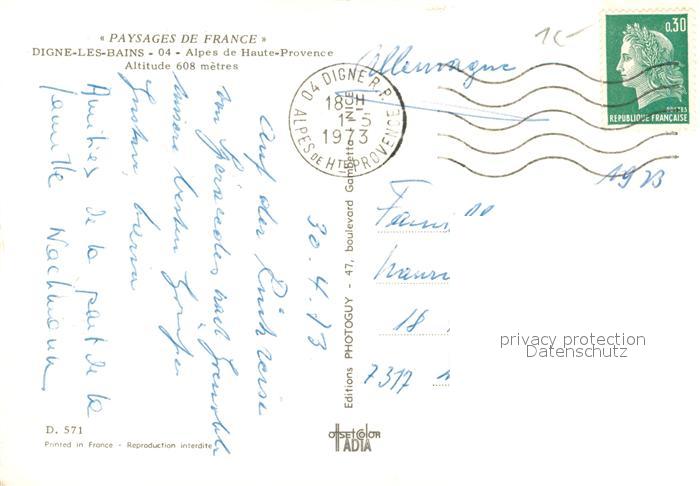 « PAYSAGES DE FRANCE »
DIGNE-LES-BAINS - 04 - Alpes de Haute-Provence
Altitude 608 mètres
30.4.73
Auf der Rückreise
von
nach Grenoble
unsere besten Grüße
Amitiés de la part de la
famille
D. 571
Printed in France - Reproduction interdite
Editions PHOTOGUY - 47, boulevard Gambetta
OffsetColor
ADIA
04 DIGNE R.P.
18H
1-5
1973
ALPES DE HTE PROVENCE
0,30
POSTES
REPUBLIQUE FRANÇAISE
1€-
Allemagne
1973
Fami
18
7317
privacy protection
Datenschutz